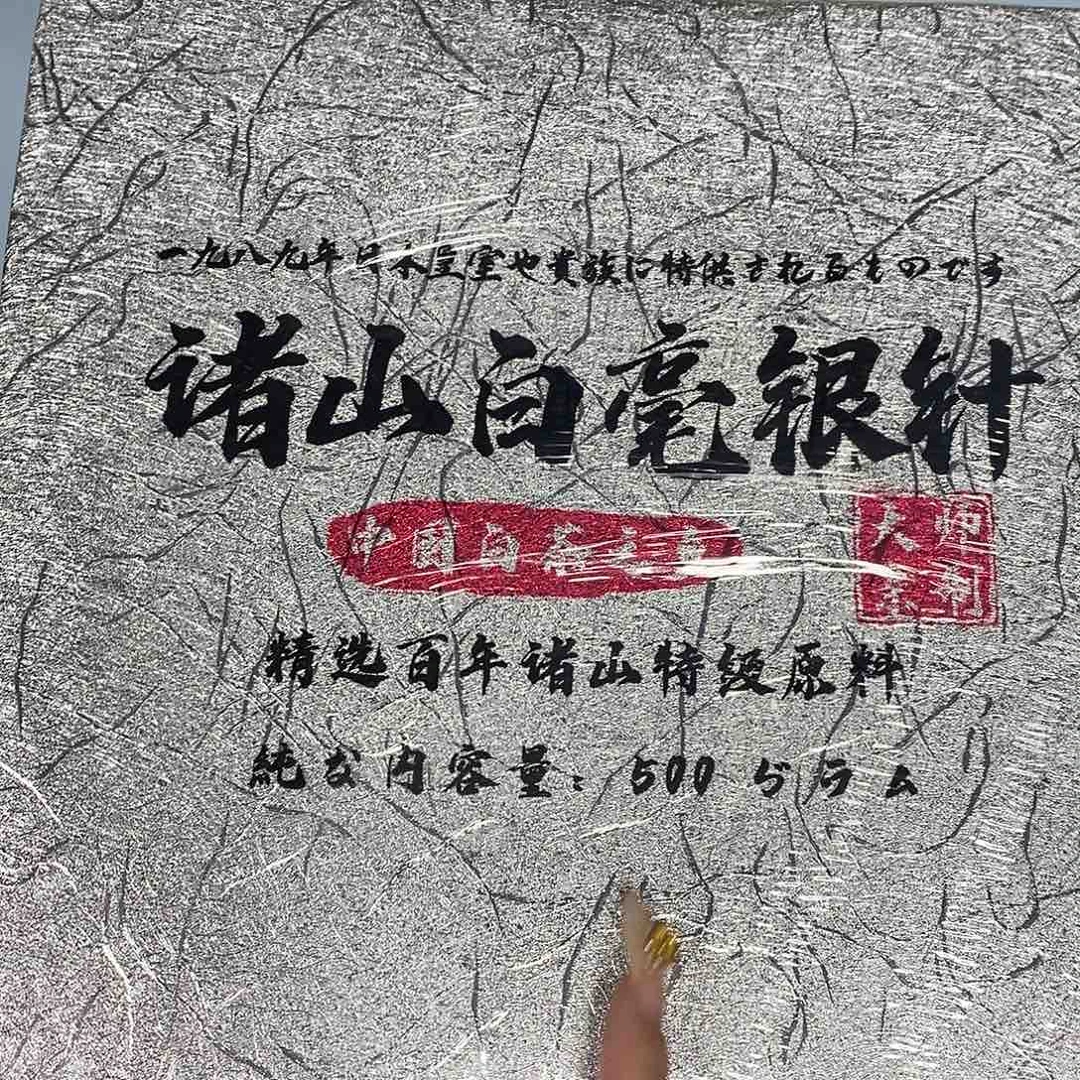 一九八九年日本皇室や貴族に特供されるものです
诸山白毫银针
中国白茶之王
大师
监制
精选百年诸山特级原料
純な内容量：500グラム